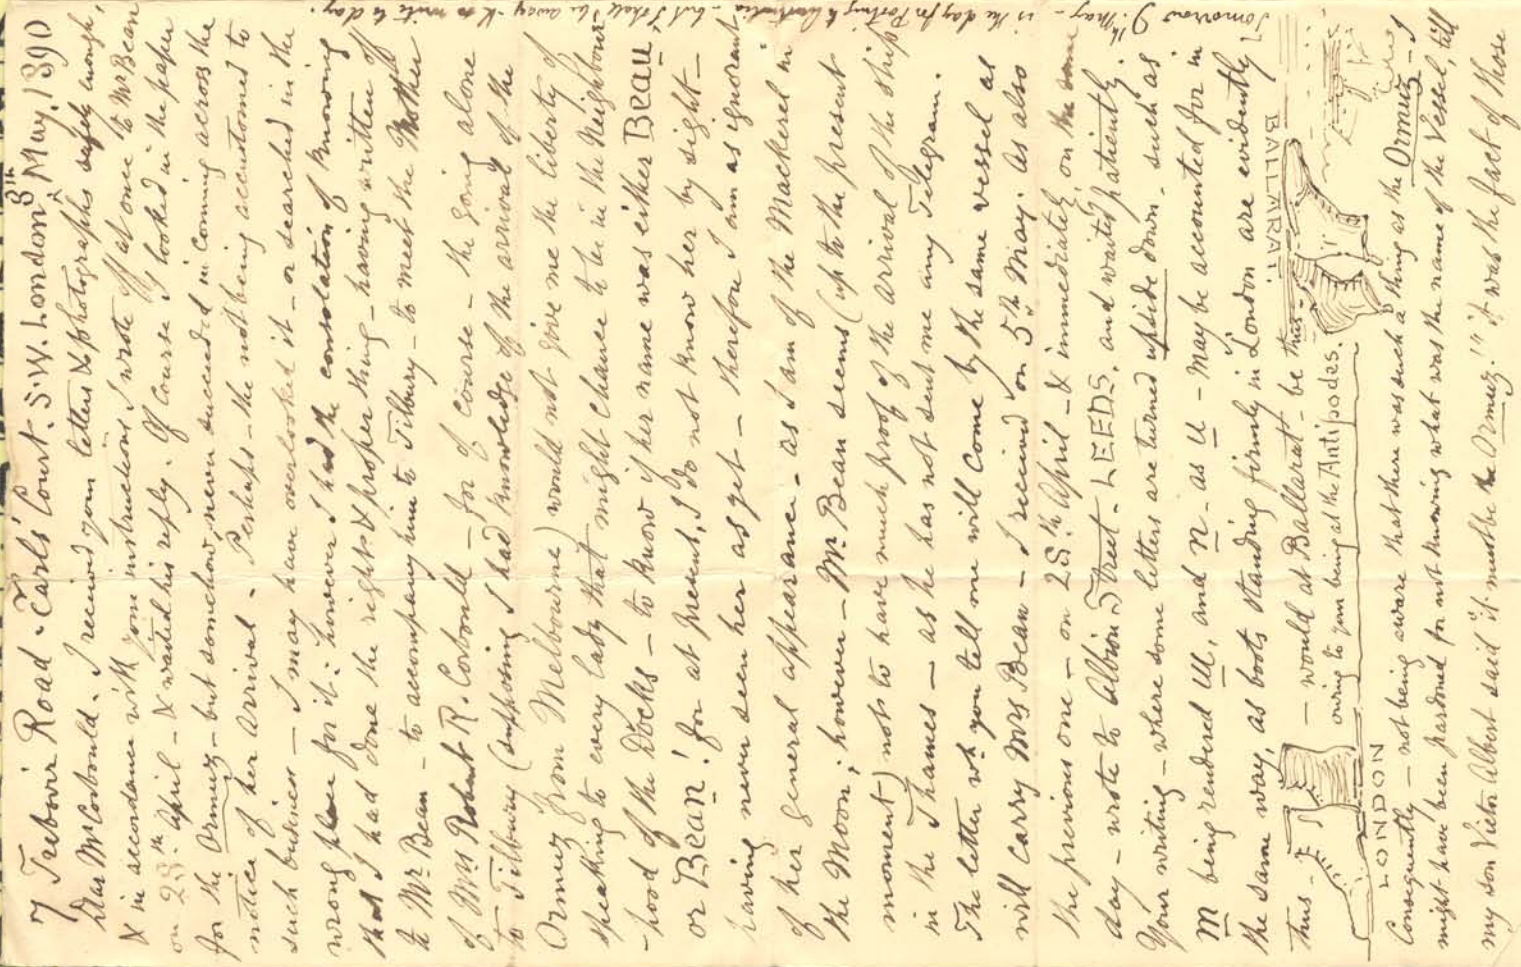 7 Trebovir Road. Earls' Court. S.W. London 8th May. 1890
Dear Mr Corbould. I received your letters & photographs safely enough,
& in accordance with your instructions I wrote off at once to Mr Bean
on 28th April - & waited his reply. Of Course I looked in the paper
for the Ormuz - but somehow, never succeeded in coming across the
notice of her arrival. Perhaps - the not being accustomed to
such business - I may have overlooked it - or searched in the
wrong place for it: however I had the consolation of knowing
that I had done the right & proper thing - having written off
to Mr Bean - to accompany him to Tilbury - to meet the Mother
of Mrs Robert R. Corbould - for of course - the going alone
to Tilbury (supposing I had knowledge of the arrival of the
Ormuz from Melbourne) would not give me the liberty of
speaking to every lady that might chance to be in the Neighbour
-hood of the Docks - to know if her name was either Beau
or Bean! for at present, I do not know her by sight -
having never seen her as yet - therefore I am as ignorant
of her general appearance - as I am of the Mackerel in
the Moon; however - Mr Bean seems (up to the present
moment) not to have much proof of the arrival of the ship
in the Thames - as he has not sent me any Telegram.
The letter wh you tell me will come by the same vessel as
will carry Mrs Bean - I received on 5th May: as also
the previous one - on 28th April - & immediately, on the same
day - wrote to Albion Street - LEEDS. and waited patiently.
Your writing - where some letters are turned upside down - such as
m being rendered u, and n - as u - may be accounted for in
the same way, as boots standing firmly in London are evidently
thus - - would at Ballarat - be thus -
BALLARAT.
owing to your being at the Antipodes.
LONDON
Consequently - not being aware that there was such a thing as the Ormuz - I
might have been pardoned for not knowing what was the name of the Vessel, till
my son Victor Albert said it must be the Ormuz!" it was the fact of those
Tomorrow 9th May - is the day for Posting to Australia - but I shall be away - so write to day.